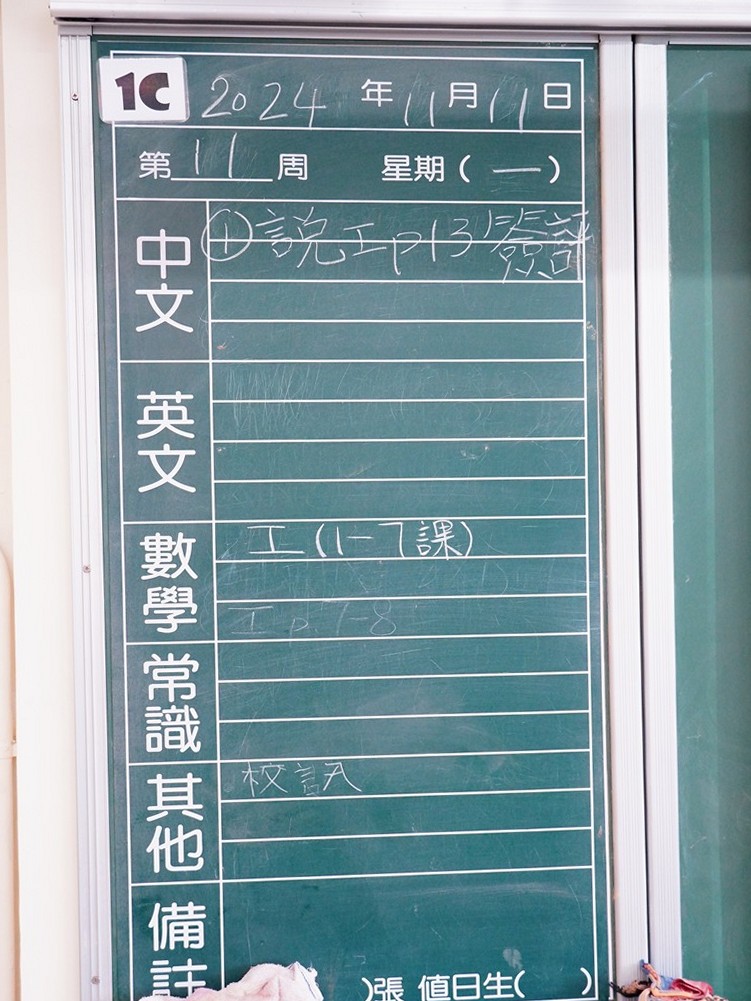 1C 2024年11月11日
第11周 星期(一)
中文 ①說工p13簽評
英文
數學 工(1-7課)
工p.7-8
常識
其他 校訊
備註
)張 值日生( )